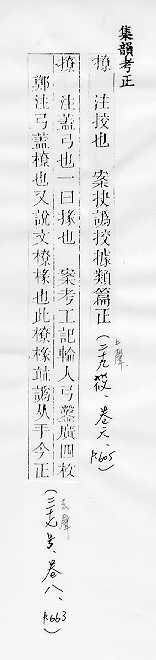 集韻考正
撩 注挍也 案抉譌挍據類篇正 (二十九筱、卷六、P.605)
上聲
撩 注蓋弓也一曰掾也 案考工記輪人弓鑿廣四枚
鄭注弓蓋橑也又說文橑椽也此橑椽竝譌从手今正
去聲
(三十七号、卷八、P.663)